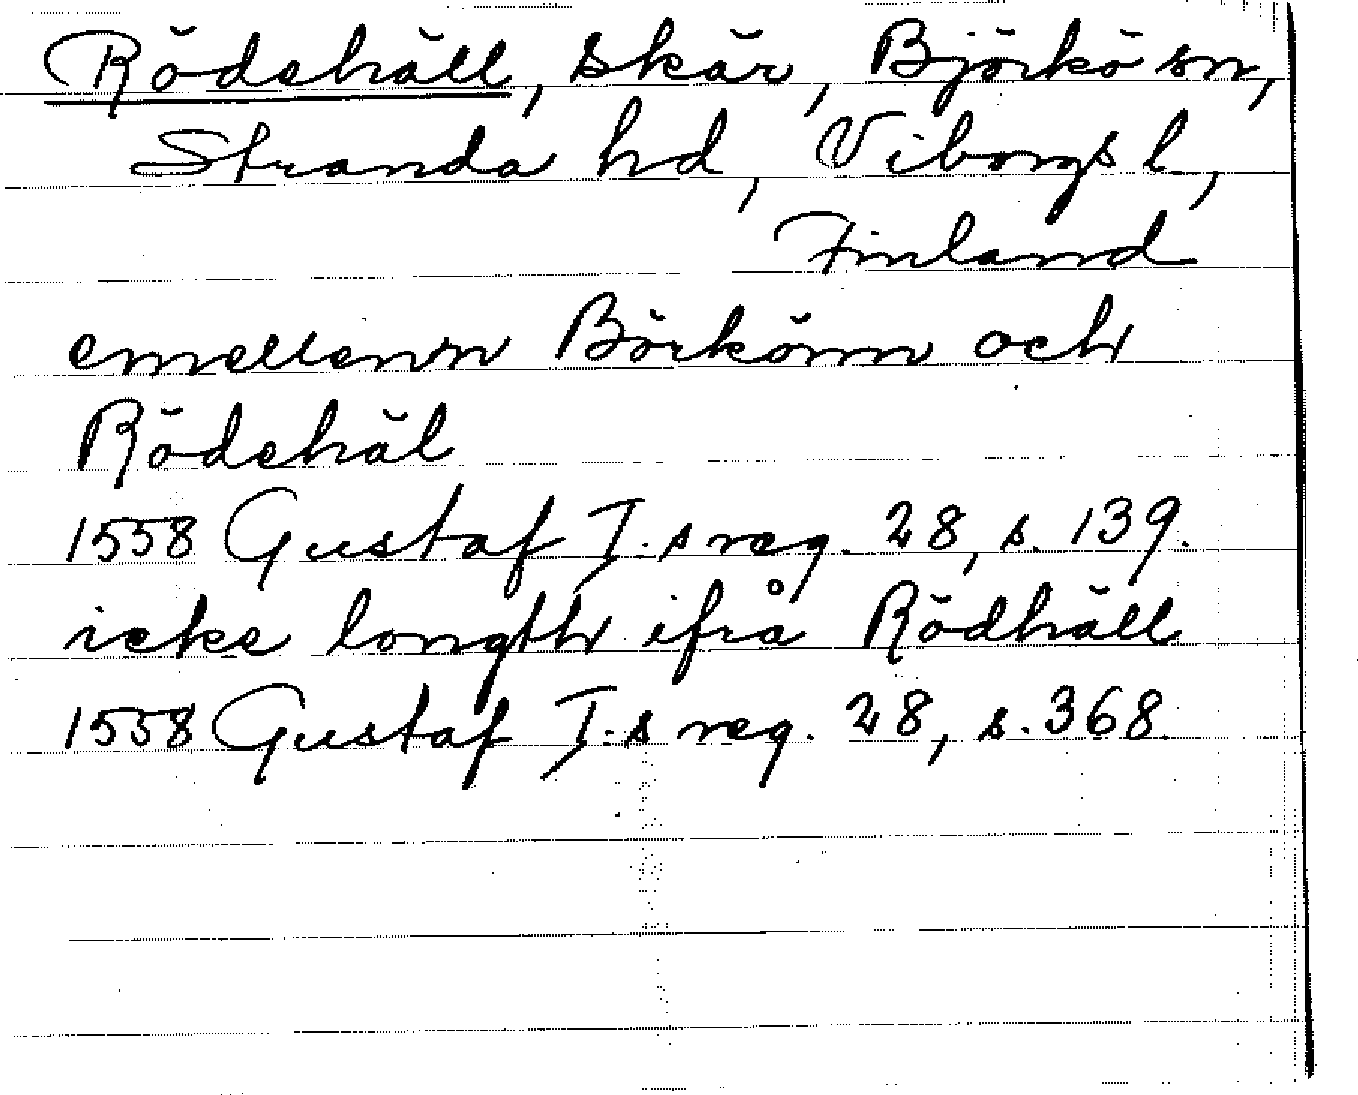 Rödehäll, skär, Björkö sn,
Stranda hd, Viborgs l,
Finland
emellenn Börkönn och
Rödehäl
1558 Gustaf I.s reg. 28, s. 139.
icke longth ifrå Rödhäll
1558 Gustaf I.s reg. 28, s. 368.